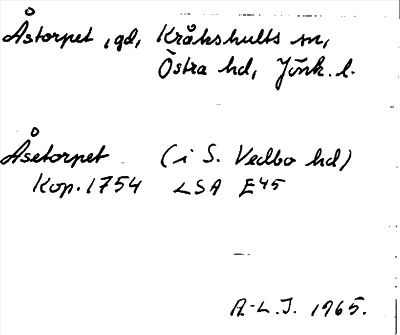 Åstorpet, gd, Kråkshults sn,
Östra hd, Jönk. l.
Åsetorpet (i S. Vedbo hd)
Kop. 1754 LSA E45
A-L.J. 1965.